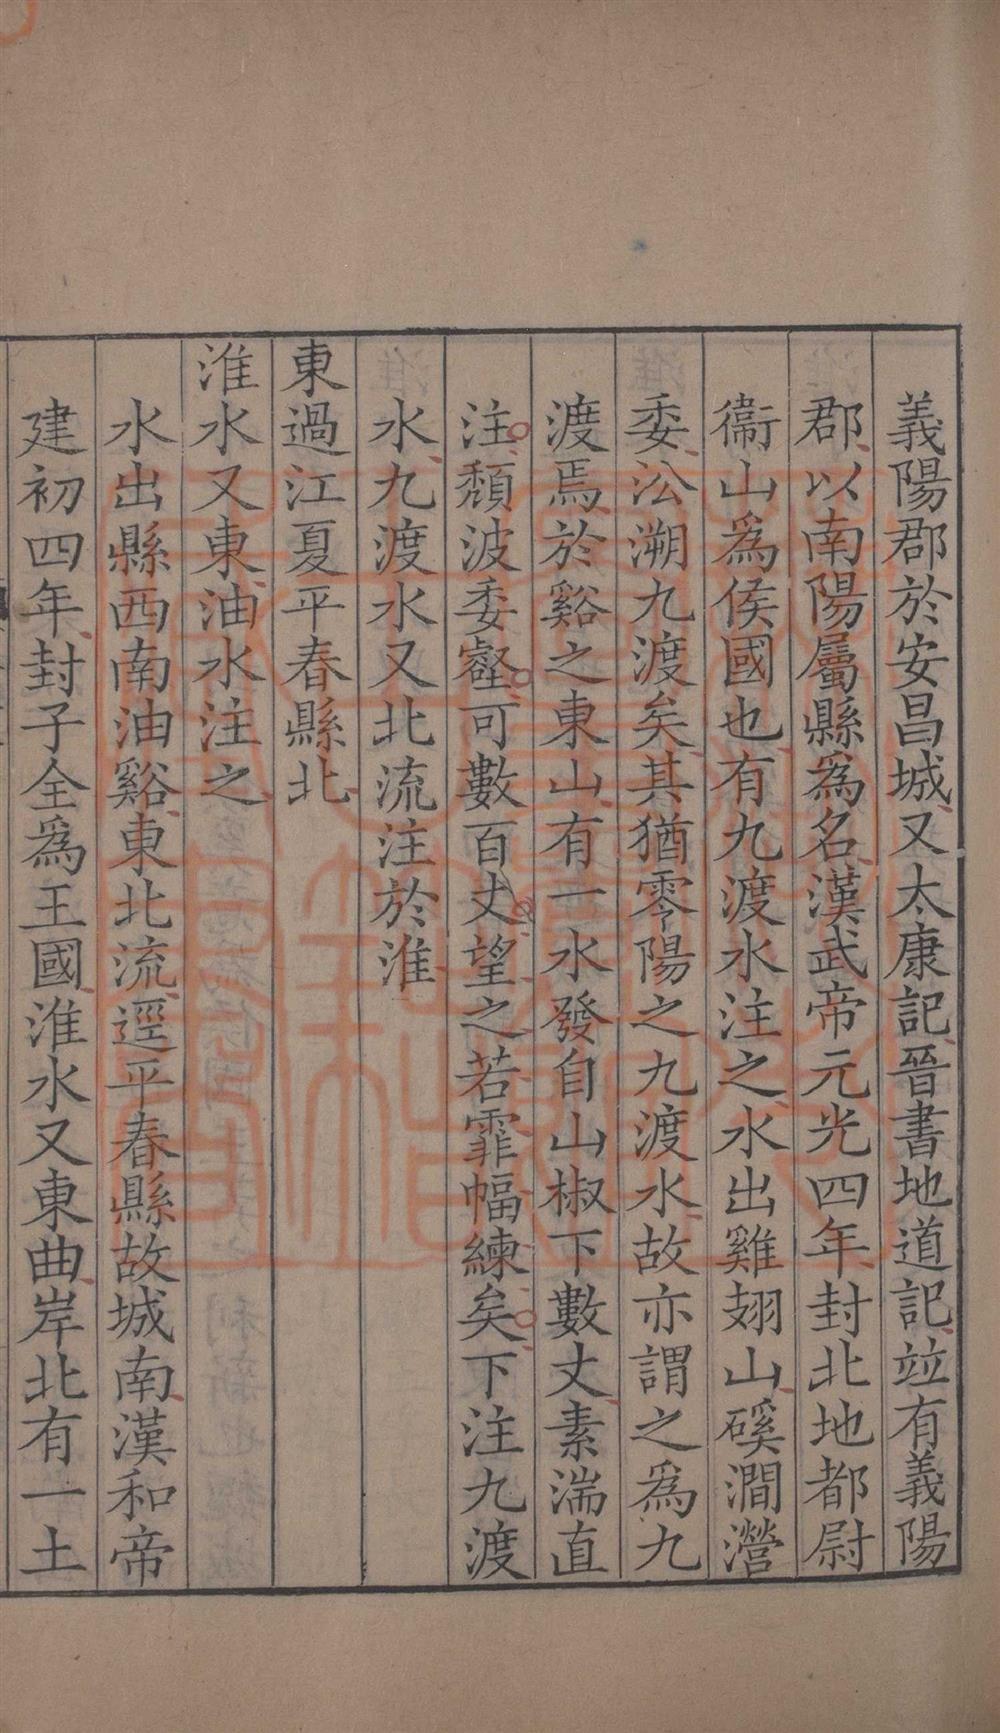 義陽郡於安昌城又太康記晉書地道記竝有義陽
郡以南陽屬縣爲名漢武帝元光四年封北地都尉
衞山爲侯國也有九渡水注之水出雞翅山磎澗瀯
委沿溯九渡矣其猶零陽之九渡水故亦謂之爲九
渡焉於谿之東山有一水發自山椒下數丈素湍直
注頹波委壑可數百丈望之若霏幅練矣下注九渡
水九渡水又北流注於淮
東過江夏平春縣北
淮水又東油水注之
水出縣西南油谿東北流逕平春縣故城南漢和帝
建初四年封子全爲王國淮水又東曲岸北有一土